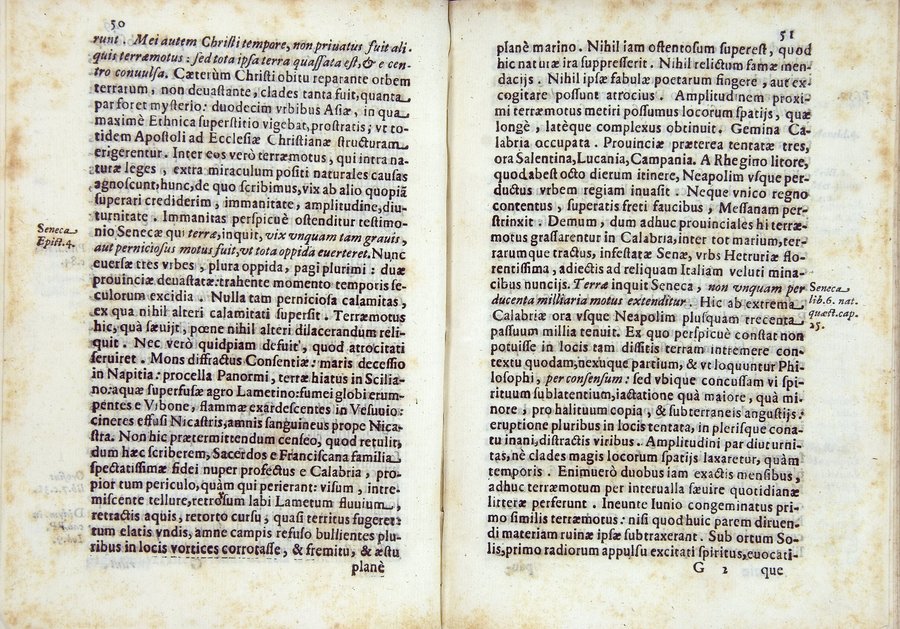 50
runt. Mei autem Christi tempore, non priuatus fuit ali-
quis terræmotus: sed tota ipsa terra quassata est, & e cen-
tro conuulsa. Cæterùm Christi obitu reparante orbem
terrarum, non deuastante, clades tanta fuit, quanta
par foret mysterio: duodecim vrbibus Asiæ, in qua
maximè Ethnica superstitio vigebat, prostratis; vt to-
tidem Apostoli ad Ecclesiæ Christianæ structuram
erigerentur. Inter eos verò terræmotus, qui intra na-
turæ leges, extra miraculum positi naturales causas
agnoscunt, hunc, de quo scribimus, vix ab alio quopiã
superari crediderim, immanitate, amplitudine, diu-
turnitate. Immanitas perspicuè ostenditur testimo-
nio Senecæ qui terra, inquit, vix vnquam tam grauis,
aut perniciosus motus fuit, vt tota oppida euerteret. Nunc
euersæ tres vrbes, plura oppida, pagi plurimi: duæ
prouinciæ deuastatæ: trahente momento temporis se-
culorum excidia. Nulla tam perniciosa calamitas,
ex qua nihil alteri calamitati supersit. Terræmotus
hic, quà sæuijt, pœne nihil alteri dilacerandum reli-
quit. Nec verò quidpiam defuit, quod atrocitati
seruiret. Mons diffractus Consentiæ: maris decessio
in Napitia: procella Panormi, terræ hiatus in Scilia-
no: aquæ superfusæ agro Lametino: fumei globi erum-
pentes e Vibone, flammæ exardescentes in Vesuuio:
cineres effusi Nicastris, amnis sanguineus prope Nica-
stra. Non hic prætermittendum censeo, quod retulit,
dum hæc scriberem, Sacerdos e Franciscana familia
spectatissimæ fidei nuper profectus e Calabria, pro-
pior tum periculo, quàm qui perierant: visum, intre-
miscente tellure, retrorsum labi Lametum fluuium,
retractis aquis, retorto cursu, quasi territus fugeret:
tum elatis vndis, amne campis refuso bullientes plu-
ribus in locis vortices corrotasse, & fremitu, & æstu
planè
Seneca
Epist. 4.
51
planè marino. Nihil iam ostentosum superest, quod
hic natura ira suppresserit. Nihil relictum famæ men-
dacijs. Nihil ipsæ fabulæ poetarum fingere, aut ex-
cogitare possunt atrocius. Amplitudinem proxi-
mi terræmotus metiri possumus locorum spatijs, quæ
longè, latèque complexus obtinuit. Gemina Ca-
labria occupata. Prouinciæ præterea tentatæ tres,
ora Salentina, Lucania, Campania. A Rhegino litore,
quod abest octo dierum itinere, Neapolim vsque per-
ductus vrbem regiam inuasit. Neque vnico regno
contentus, superatis freti faucibus, Messanam per-
strinxit. Demum, dum adhuc prouinciales hi terræ-
motus grassarentur in Calabria, inter tot marium, ter-
rarumque tractus, infestatæ Senæ, vrbs Hetruriæ flo-
rentissima, adiectis ad reliquam Italiam veluti mina-
cibus nuncijs. Terræ inquit Seneca, non vnquam per
ducenta milliaria motus extenditur. Hic ab extrema
Calabriæ ora vsque Neapolim plusquam trecenta
passuum millia tenuit. Ex quo perspicuè constat non
potuisse in locis tam dissitis terram intremere con-
textu quodam, nexuque partium, & vt loquuntur Phi-
losophi, per consensum: sed vbique concussam vi spi-
rituum sublatentium, iactatione quà maiore, quà mi-
nore, pro halituum copia, & subterraneis angustijs:
eruptione pluribus in locis tentata, in plerisque cona-
tu inani, distractis viribus. Amplitudini par diuturni-
tas, nè clades magis locorum spatijs laxaretur, quàm
temporis. Enimuerò duobus iam exactis mensibus,
adhuc terræmotum per interualla sæuire quotidianæ
litteræ perferunt. Ineunte Iunio congeminatus pri-
mo similis terræmotus: nisi quod huic parem diruen-
di materiam ruinæ ipsæ subtraxerant. Sub ortum So-
lis, primo radiorum appulsu excitati spiritus, euocati-
G 2 que
Seneca
lib. 6. nat.
quæst. cap.
25.